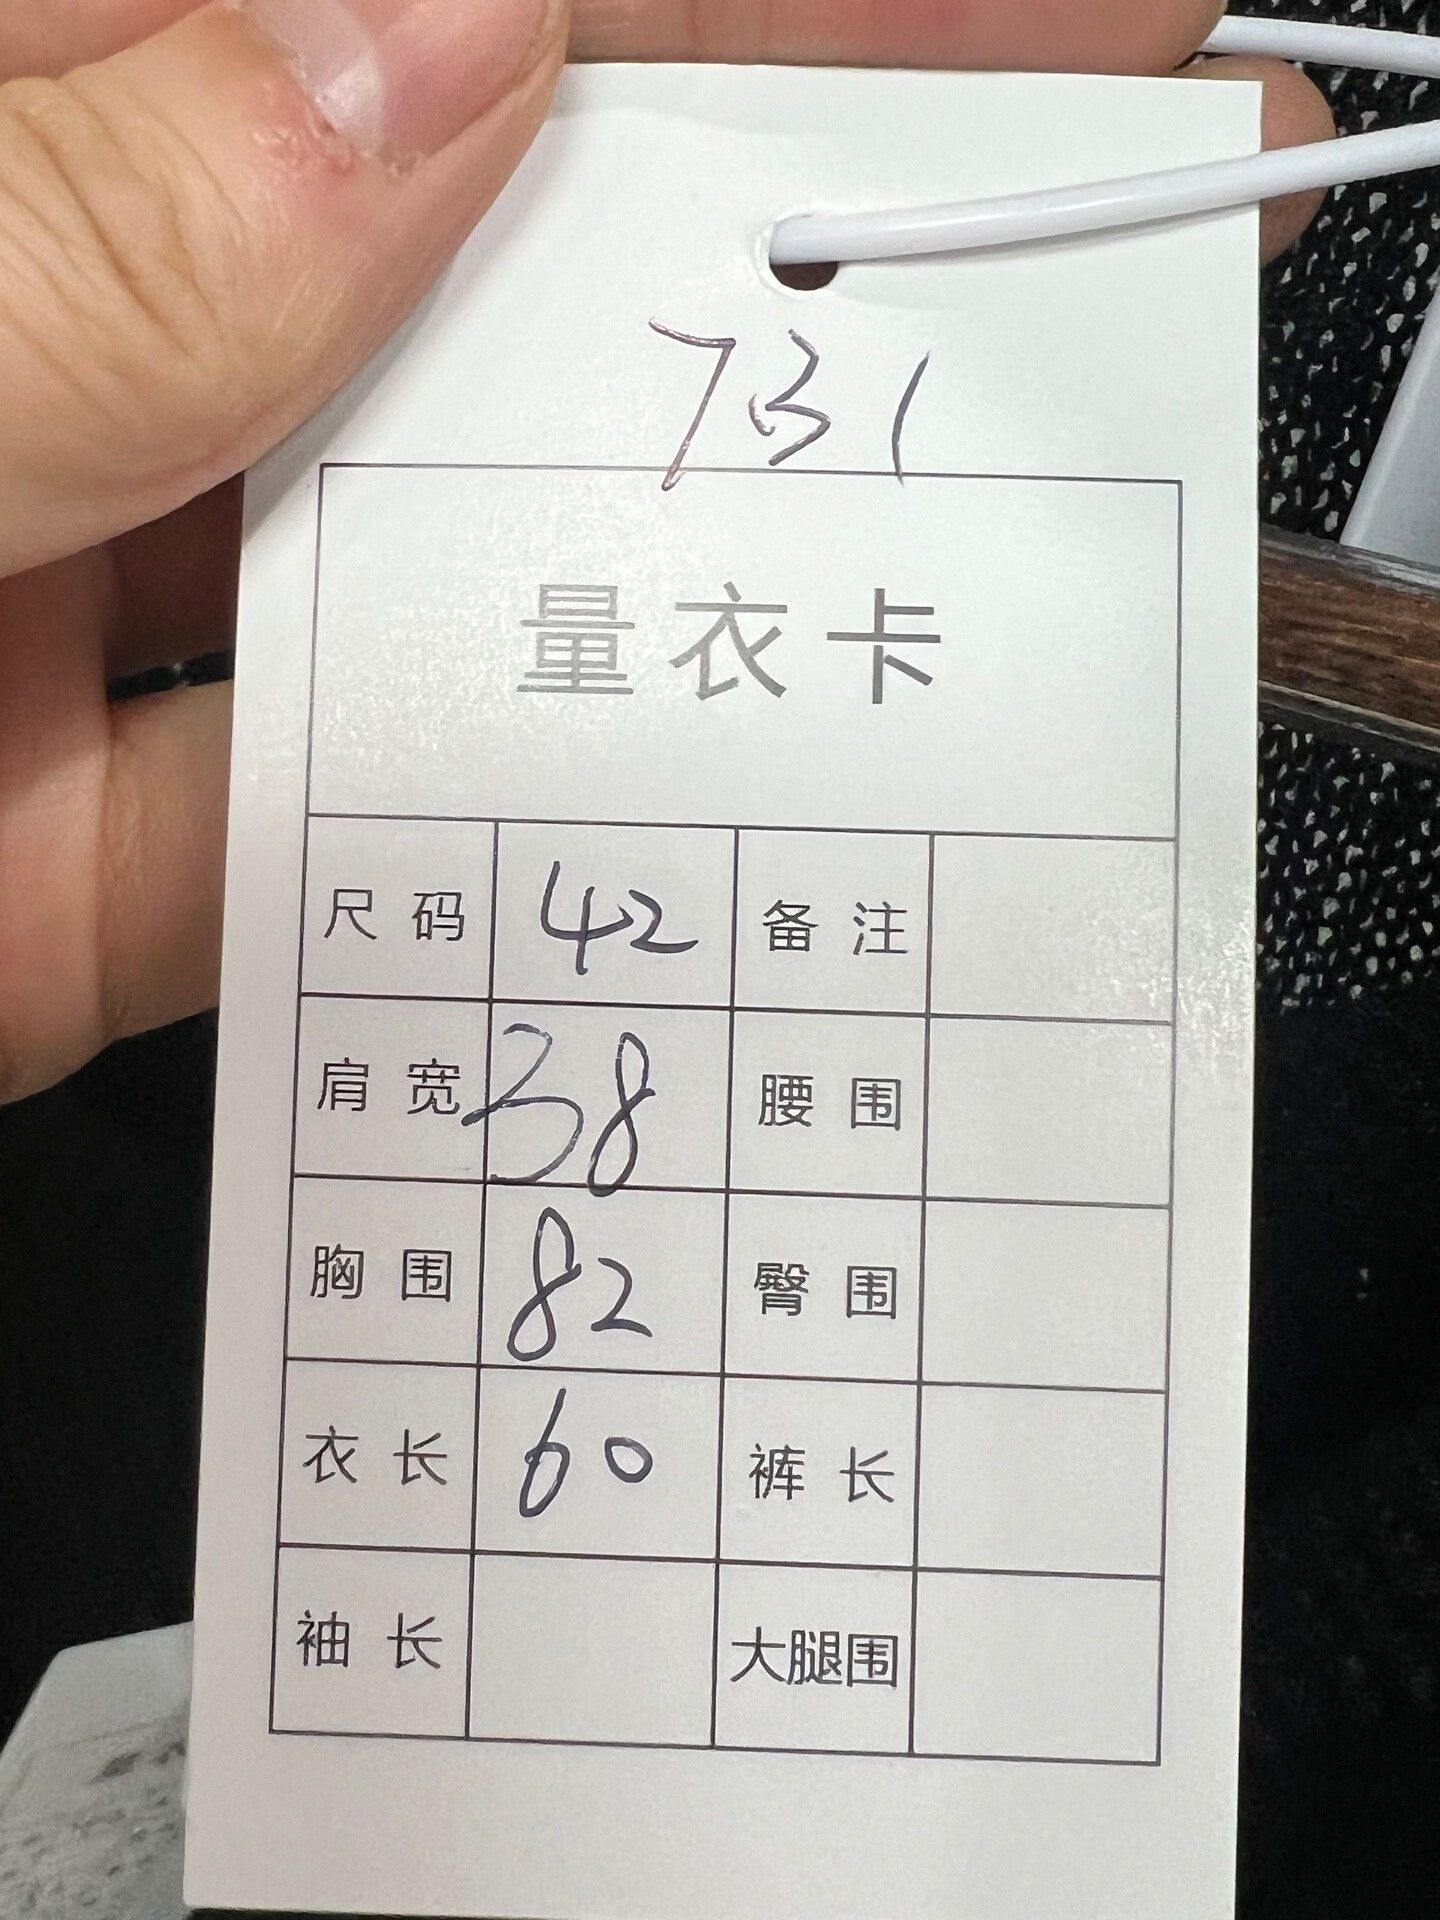 731
量衣卡
尺码 42 备注
肩宽 38 腰围
胸围 82 臀围
衣长 60 裤长
袖长 大腿围